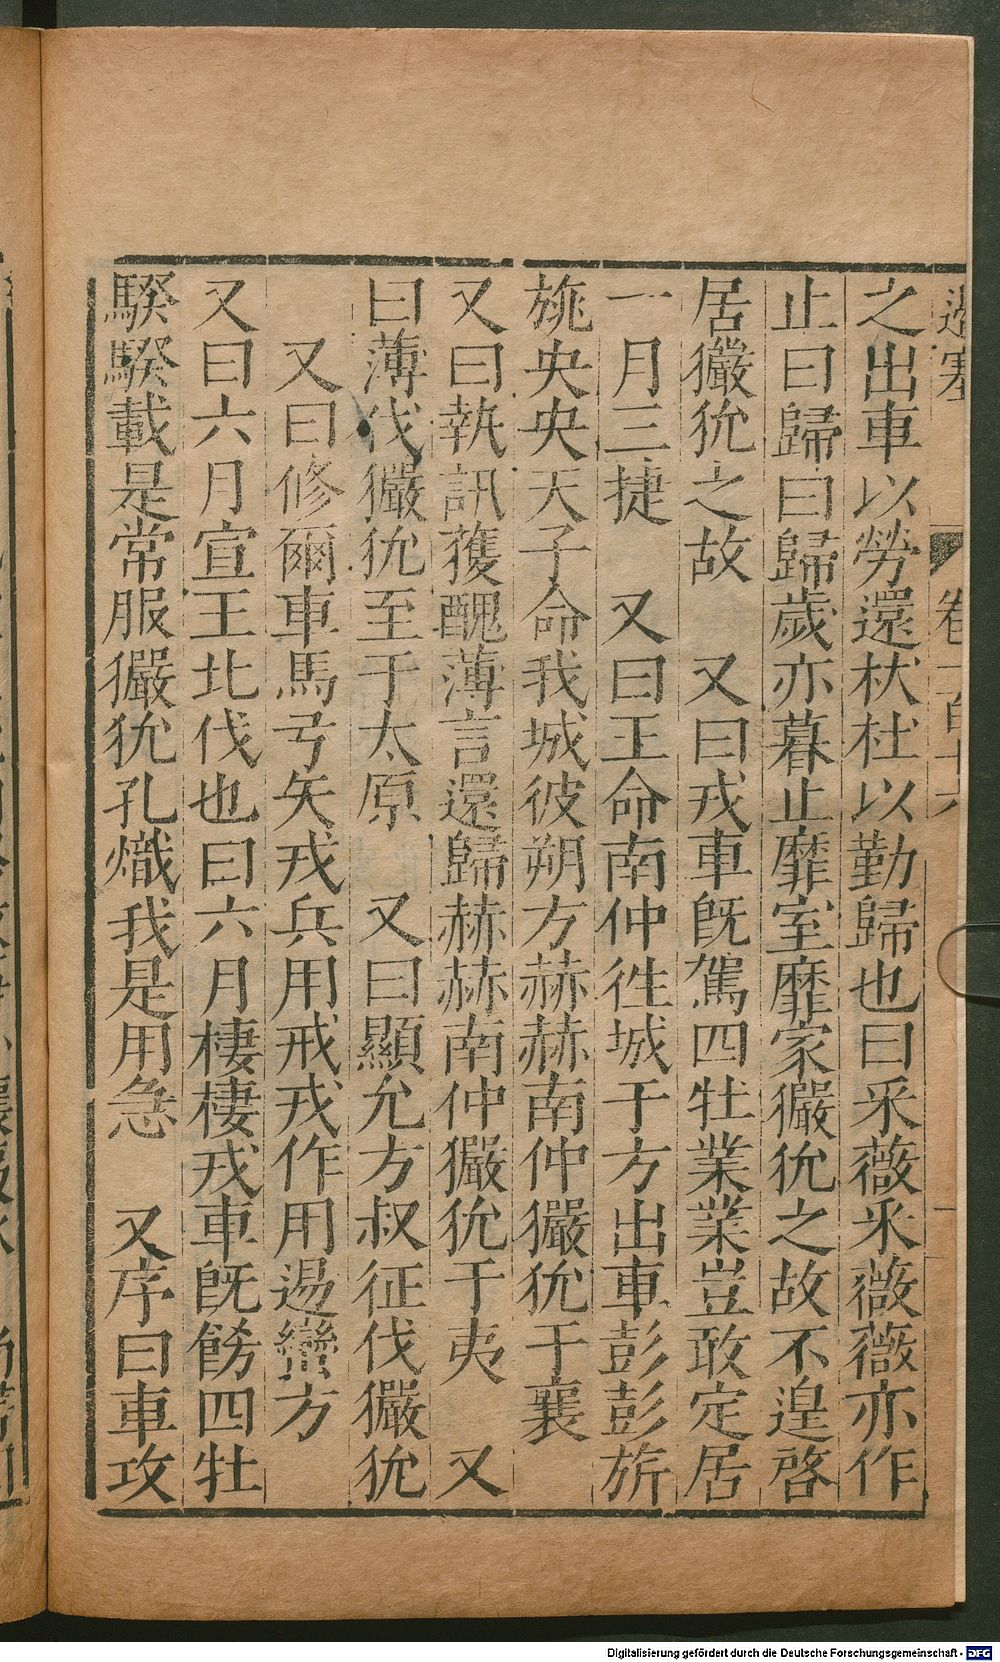 邊塞 卷一百十八
之出車以勞還杕杜以勤歸也曰采薇采薇薇亦作
止曰歸曰歸歲亦暮止靡室靡家玁狁之故不遑啓
居玁狁之故　又曰戎車旣駕四牡業業豈敢定居
一月三捷　又曰王命南仲徃城于方出車彭彭旂
旐央央天子命我城彼朔方赫赫南仲玁狁于襄
又曰執訊獲醜薄言還歸赫赫南仲玁狁于夷　又
曰薄伐玁狁至于太原　又曰顯允方叔征伐玁狁
又曰修爾車馬弓矢戎兵用戒戎作用逷蠻方
又曰六月宣王北伐也曰六月棲棲戎車旣飭四牡
騤騤載是常服玁狁孔熾我是用急　又序曰車攻
Digitalisierung gefördert durch die Deutsche Forschungsgemeinschaft - DFG